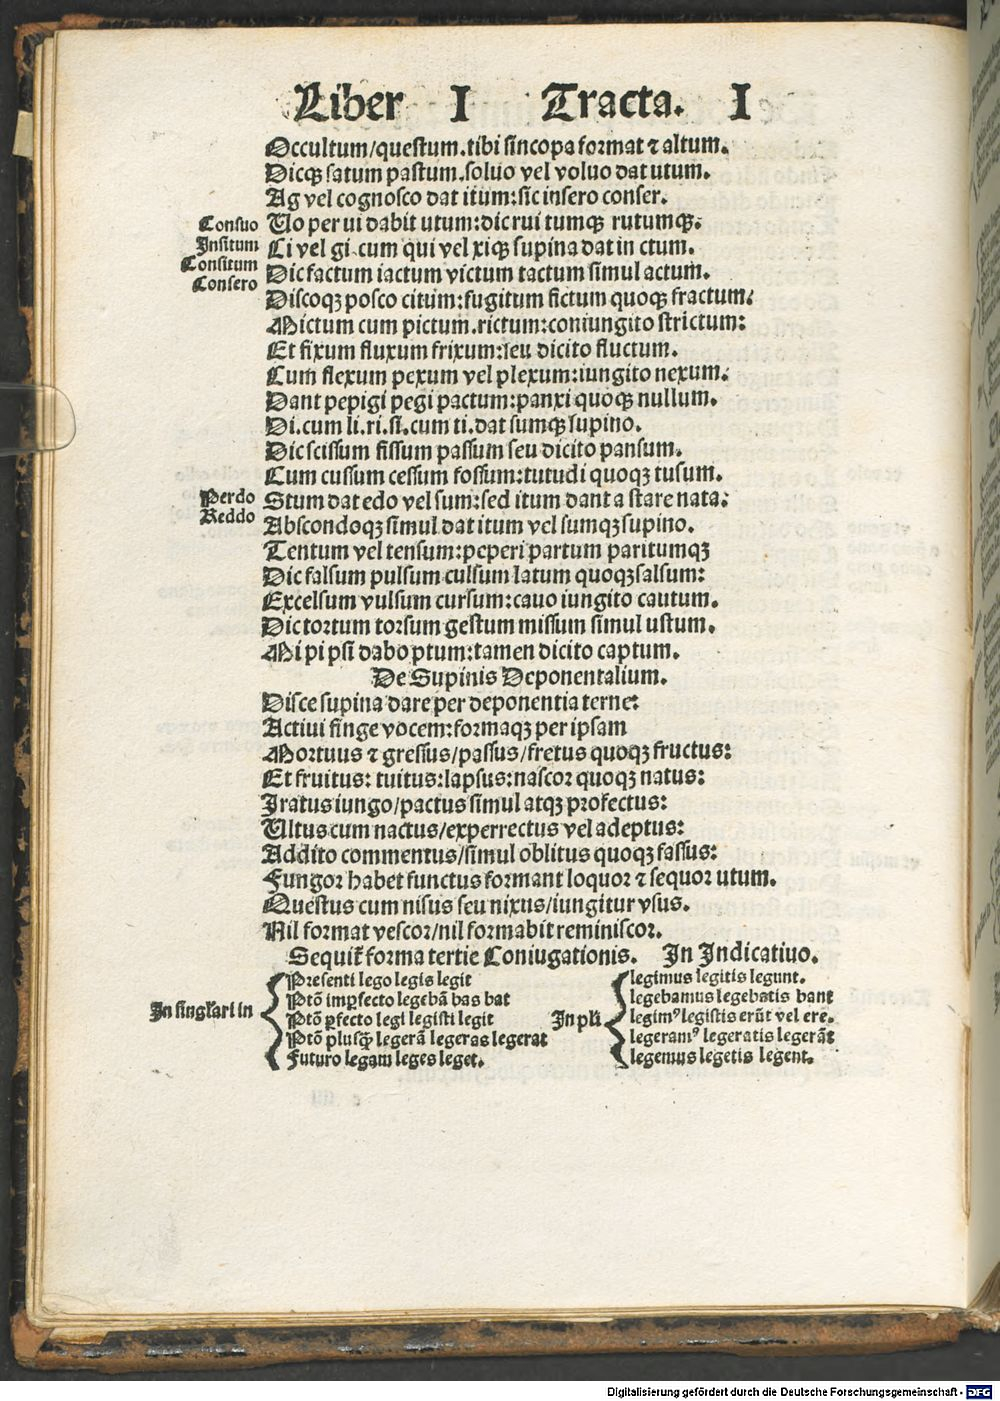 Liber I Tracta. I
Occultum/questum.tibi sincopa format ⁊ altum.
Dicqꝫ satum pastum.soluo vel voluo dat utum.
Ag vel cognosco dat itum:sic insero conser.
Consuo
Uo per ui dabit utum:dic rui tumqꝫ rutumqꝫ.
Insitum
Ci vel gi.cum qui vel xiqꝫ supina dat in ctum.
Consitum
Dic factum iactum victum tactum simul actum.
Consero
Discoqꝫ posco citum:fugitum fictum quoqꝫ fractum:
Mictum cum pictum.rictum:coniungito strictum:
Et fixum fluxum frixum:seu dicito fluctum.
Cum flexum pexum vel plexum:iungito nexum:
Dant pepigi pegi pactum:panxi quoqꝫ nullum.
Di.cum li.ri.si.cum ti.dat sumqꝫ supino.
Dic scissum fissum passum seu dicito pansum.
Cum cussum cessum fossum:tutudi quoqꝫ tusum.
Perdo
Stum dat edo vel sum:sed itum dant a stare nata:
Reddo
Abscondoqꝫ simul dat itum vel sumqꝫ supino.
Tentum vel tensum:peperi partum paritumqꝫ
Dic falsum pulsum culsum latum quoqꝫ salsum:
Excelsum vulsum cursum:cauo iungito cautum.
Dic tortum torsum gestum missum simul ustum.
Mi pi psi dabo ptum:tamen dicito captum.
De Supinis Deponentalium.
Disce supina dare per deponentia terne:
Actiui finge vocem:formaqꝫ per ipsam
Mortuus ⁊ gressus/passus/fretus quoqꝫ fructus:
Et fruitus: tuitus:lapsus:nascor quoqꝫ natus:
Iratus iungo/pactus simul atqꝫ profectus:
Ultus cum nactus/experrectus vel adeptus:
Addito commentus/simul oblitus quoqꝫ fassus:
Fungor habet functus formant loquor ⁊ sequor utum.
Questus cum nisus seu nixus/iungitur vsus.
Nil format vescor/nil formabit reminiscor.
Sequit̃ forma tertie Coniugationis. In Indicatiuo.
In singl̃ari in
Presenti lego legis legit
Ptõ imꝑfecto legebã bas bat
Ptõ ꝑfecto legi legisti legit
Ptõ plusqꝫ̃ legerã legeras legerat
Futuro legam leges leget.
In pl̃i
legimus legitis legunt.
legebamus legebatis bant
legimꝰ legistis erũt vel ere.
legeramꝰ legeratis legerãt
legemus legetis legent.
Digitalisierung gefördert durch die Deutsche Forschungsgemeinschaft - DFG